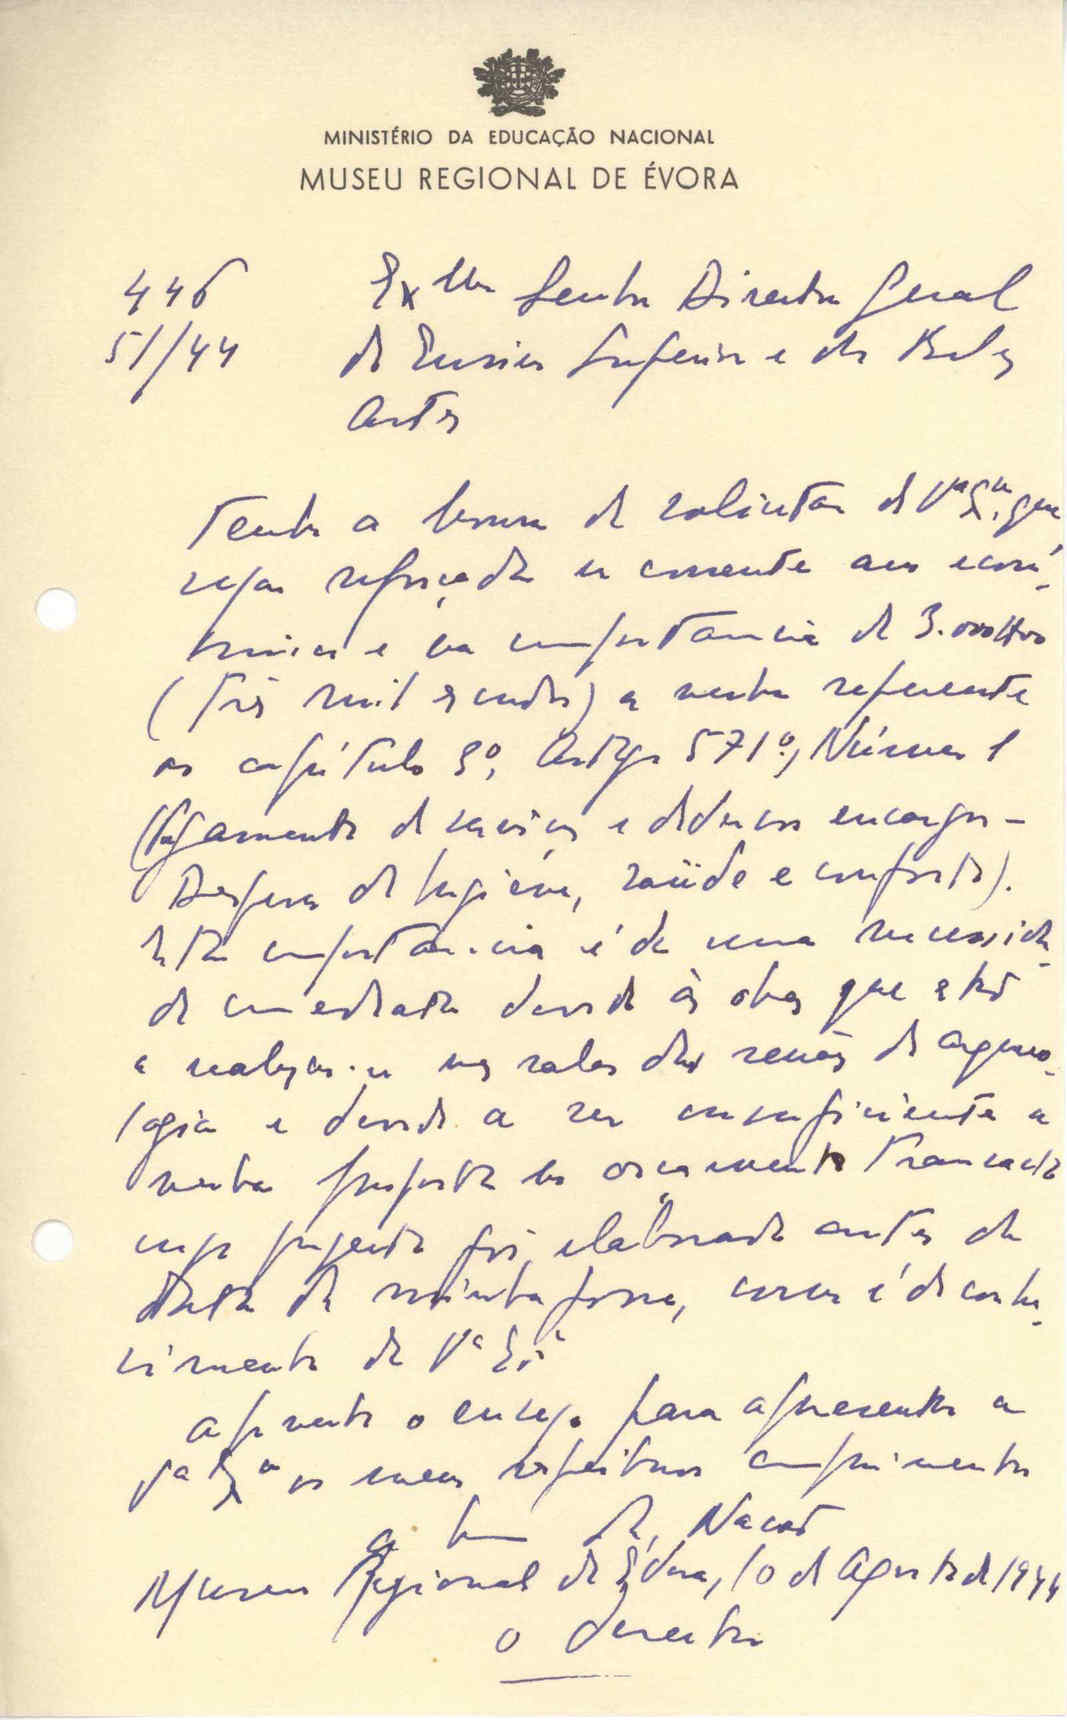 MINISTÉRIO DA EDUCAÇÃO NACIONAL
MUSEU REGIONAL DE ÉVORA
446
51//44
Exmo Senhor Director Geral
do Ensino Superior e das Belas
Artes
Tenho a honra de solicitar de Va Exa que
seja reforçada no corrente ano econó-
mico e na importancia de 3.000$00
(três mil escudos) a verba referente
ao capítulo 3º, Artigo 571º, Número 1
(Pagamento de serviços e diversos encargos -
Despesas de higiene, saüde e conforto).
Esta importancia é de uma necessida-
de imediata devido às obras que estão
a realizar-se nas salas das secções de arqueo-
logia e devido a ser insuficiente a
verba proposta no orçamento transacto
cuja proposta foi elaborada antes da
data da minha posse, como é do conhe-
cimento de Va Exa
Aproveito o ensejo para apresentar a
Va Exa os meus respeitosos cumprimentos
A bem da Nação
Museu Regional de Évora, 10 de Agosto de 1944
O Director